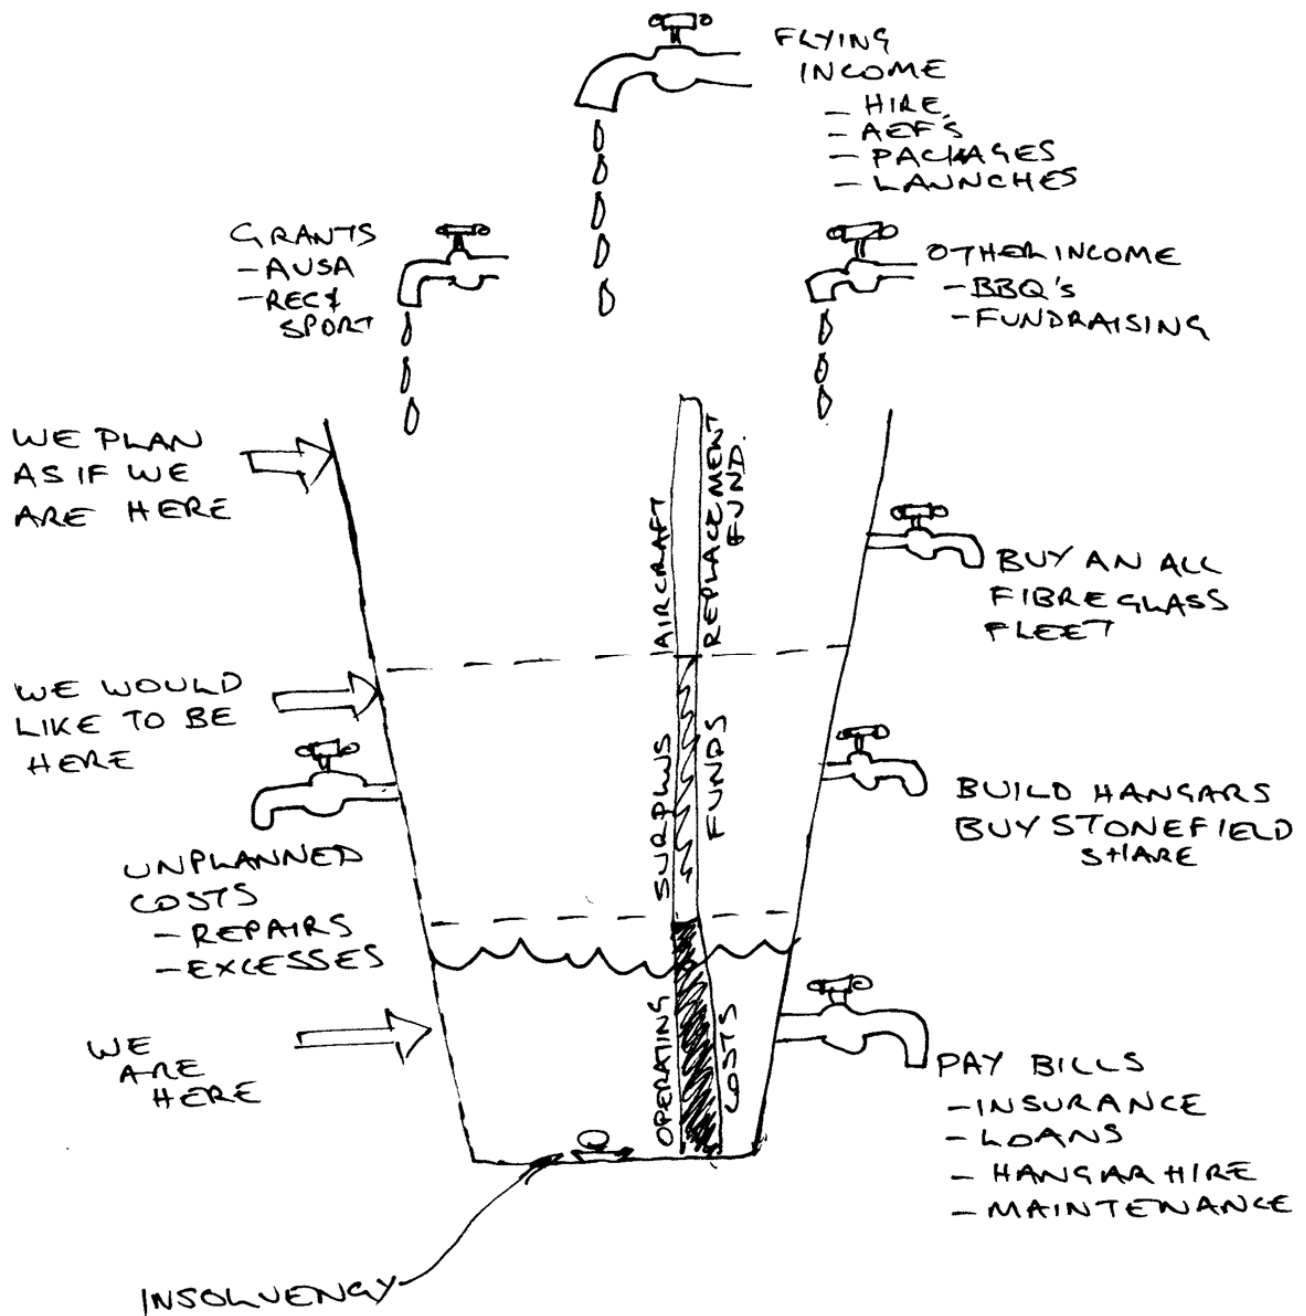 FLYING
INCOME
- HIRE
- AEF'S
- PACKAGES
- LAUNCHES
GRANTS
- AUSA
- REC &
SPORT
OTHER INCOME
- BBQ's
- FUNDRAISING
WE PLAN
AS IF WE
ARE HERE
AIRCRAFT
REPLACEMENT
FUND.
BUY AN ALL
FIBREGLASS
FLEET
WE WOULD
LIKE TO BE
HERE
SURPLUS
FUNDS
BUILD HANGARS
BUY STONEFIELD
SHARE
UNPLANNED
COSTS
- REPAIRS
- EXCESSES
WE
ARE
HERE
OPERATING
COSTS
PAY BILLS
- INSURANCE
- LOANS
- HANGAR HIRE
- MAINTENANCE
INSOLVENCY